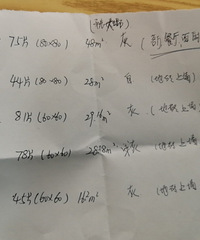 75片(80×80) 48m² 灰(
44片(80×80) 28m² 白(地砖上墙
81片(60×60) 29.16m² 灰(地砖上墙
78片(60×60) 28.08m² 灰(地砖上墙
45片(60×60) 16.2m² 灰(地砖上墙